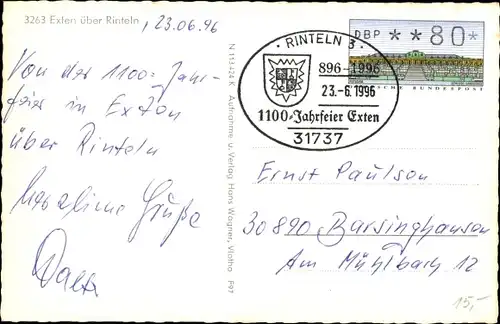 3263 Exten über Rinteln
, 23.06.96
Von der 1100-Jahr-
feier in Exten
über Rinteln
Herzliche Grüße
N 113424 K Aufnahme u. Verlag Hans Wagner, Vlotho F97
DBP **80*
DEUTSCHE BUNDESPOST
· RINTELN 3 ·
896-1996
23.-6.1996
1100-Jahrfeier Exten
31737
Ernst Paulson
30890 Barsinghausen
Am Mühlbach 12
15,-